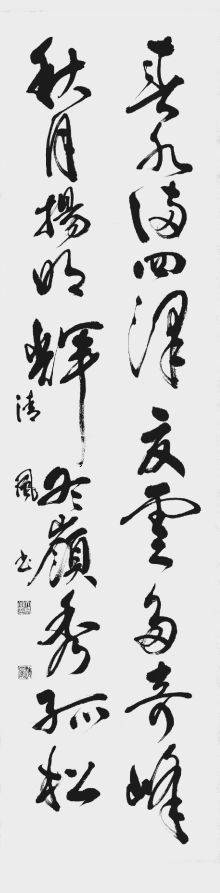 春水满四泽夏云多奇峰
秋月揚明輝冬嶺秀孤松
清風书